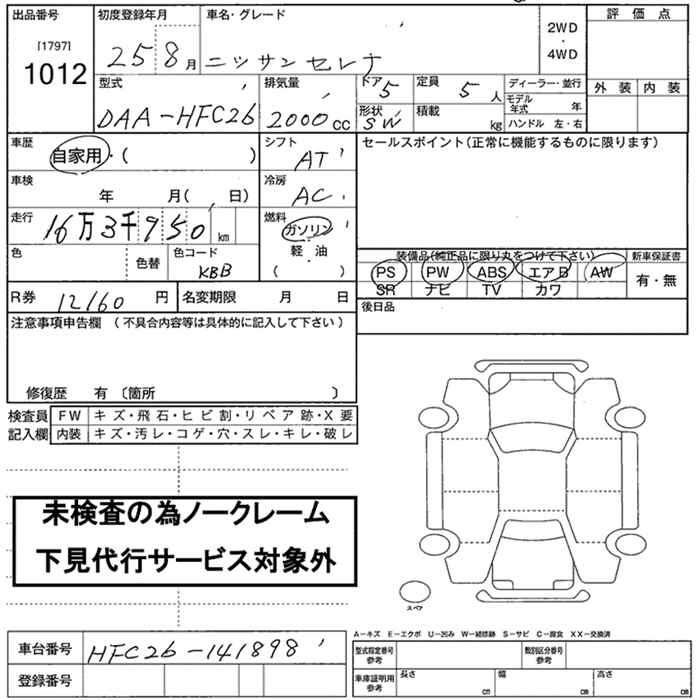 出品番号 初度登録年月 車名・グレード 2WD・4WD 評価点
[1797]
1012 25 8月 ニッサンセレナ
外装 内装
型式 排気量 ドア 5 定員 5人 ディーラー・並行
DAA-HFC26 2000cc 形状 SW 積載 kg モデル年式 年
ハンドル 左・右
車歴 自家用・( ) シフト AT セールスポイント(正常に機能するものに限ります)
車検 年 月( 日) 冷房 AC
走行 16万3千950km 燃料 ガソリン
軽・油
( )
色 色替 色コード KBB
装備品(純正品に限り丸をつけて下さい) 新車保証書
PS PW ABS エアB AW 有・無
SR ナビ TV カワ
R券 12160円 名変期限 月 日 後日品
注意事項申告欄 (不具合内容等は具体的に記入して下さい)
修復歴 有 〔箇所 〕
検査員 FW キズ・飛石・ヒビ割・リペア跡・X要
記入欄 内装 キズ・汚レ・コゲ・穴・スレ・キレ・破レ
未検査の為ノークレーム
下見代行サービス対象外
スペア
A-キズ E-エクボ U-凹み W-補修跡 S-サビ C-腐食 XX-交換済
車台番号 HFC26-141898 型式指定番号 参考 類別区分番号 参考
登録番号 車庫証明用 参考 長さ cm 幅 cm 高さ cm